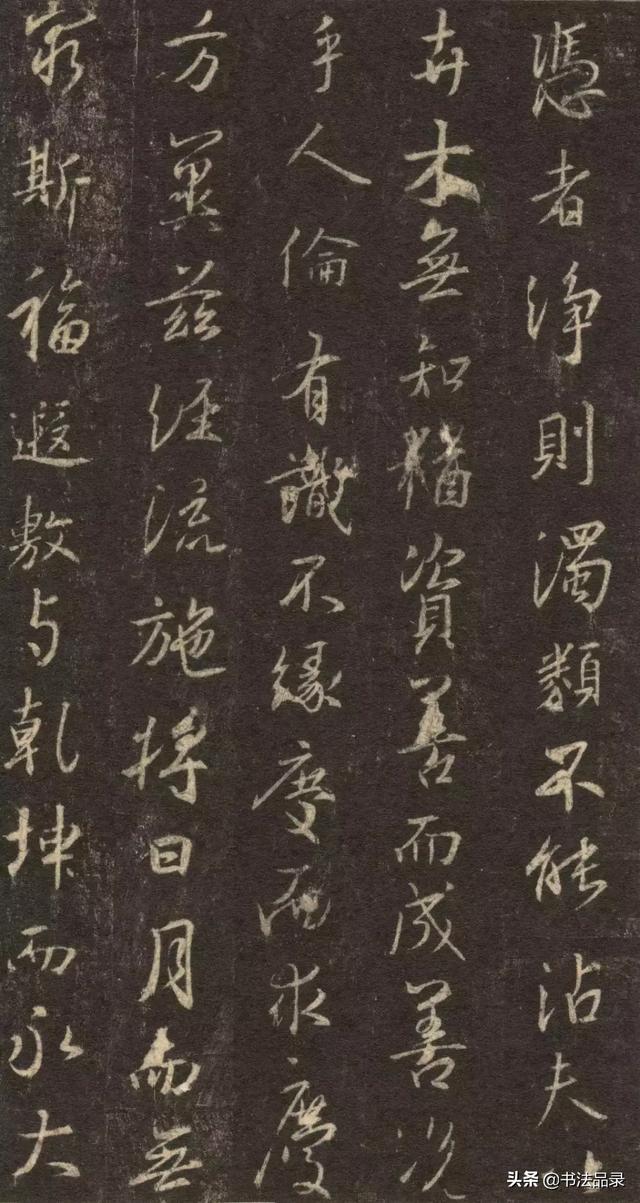 憑者淨則濁類不能沾夫以
卉木無知猶資善而成善況
乎人倫有識不緣慶而求慶
方冀茲經流施將日月而無
窮斯福遐敷与乾坤而永大
头条 @书法品录